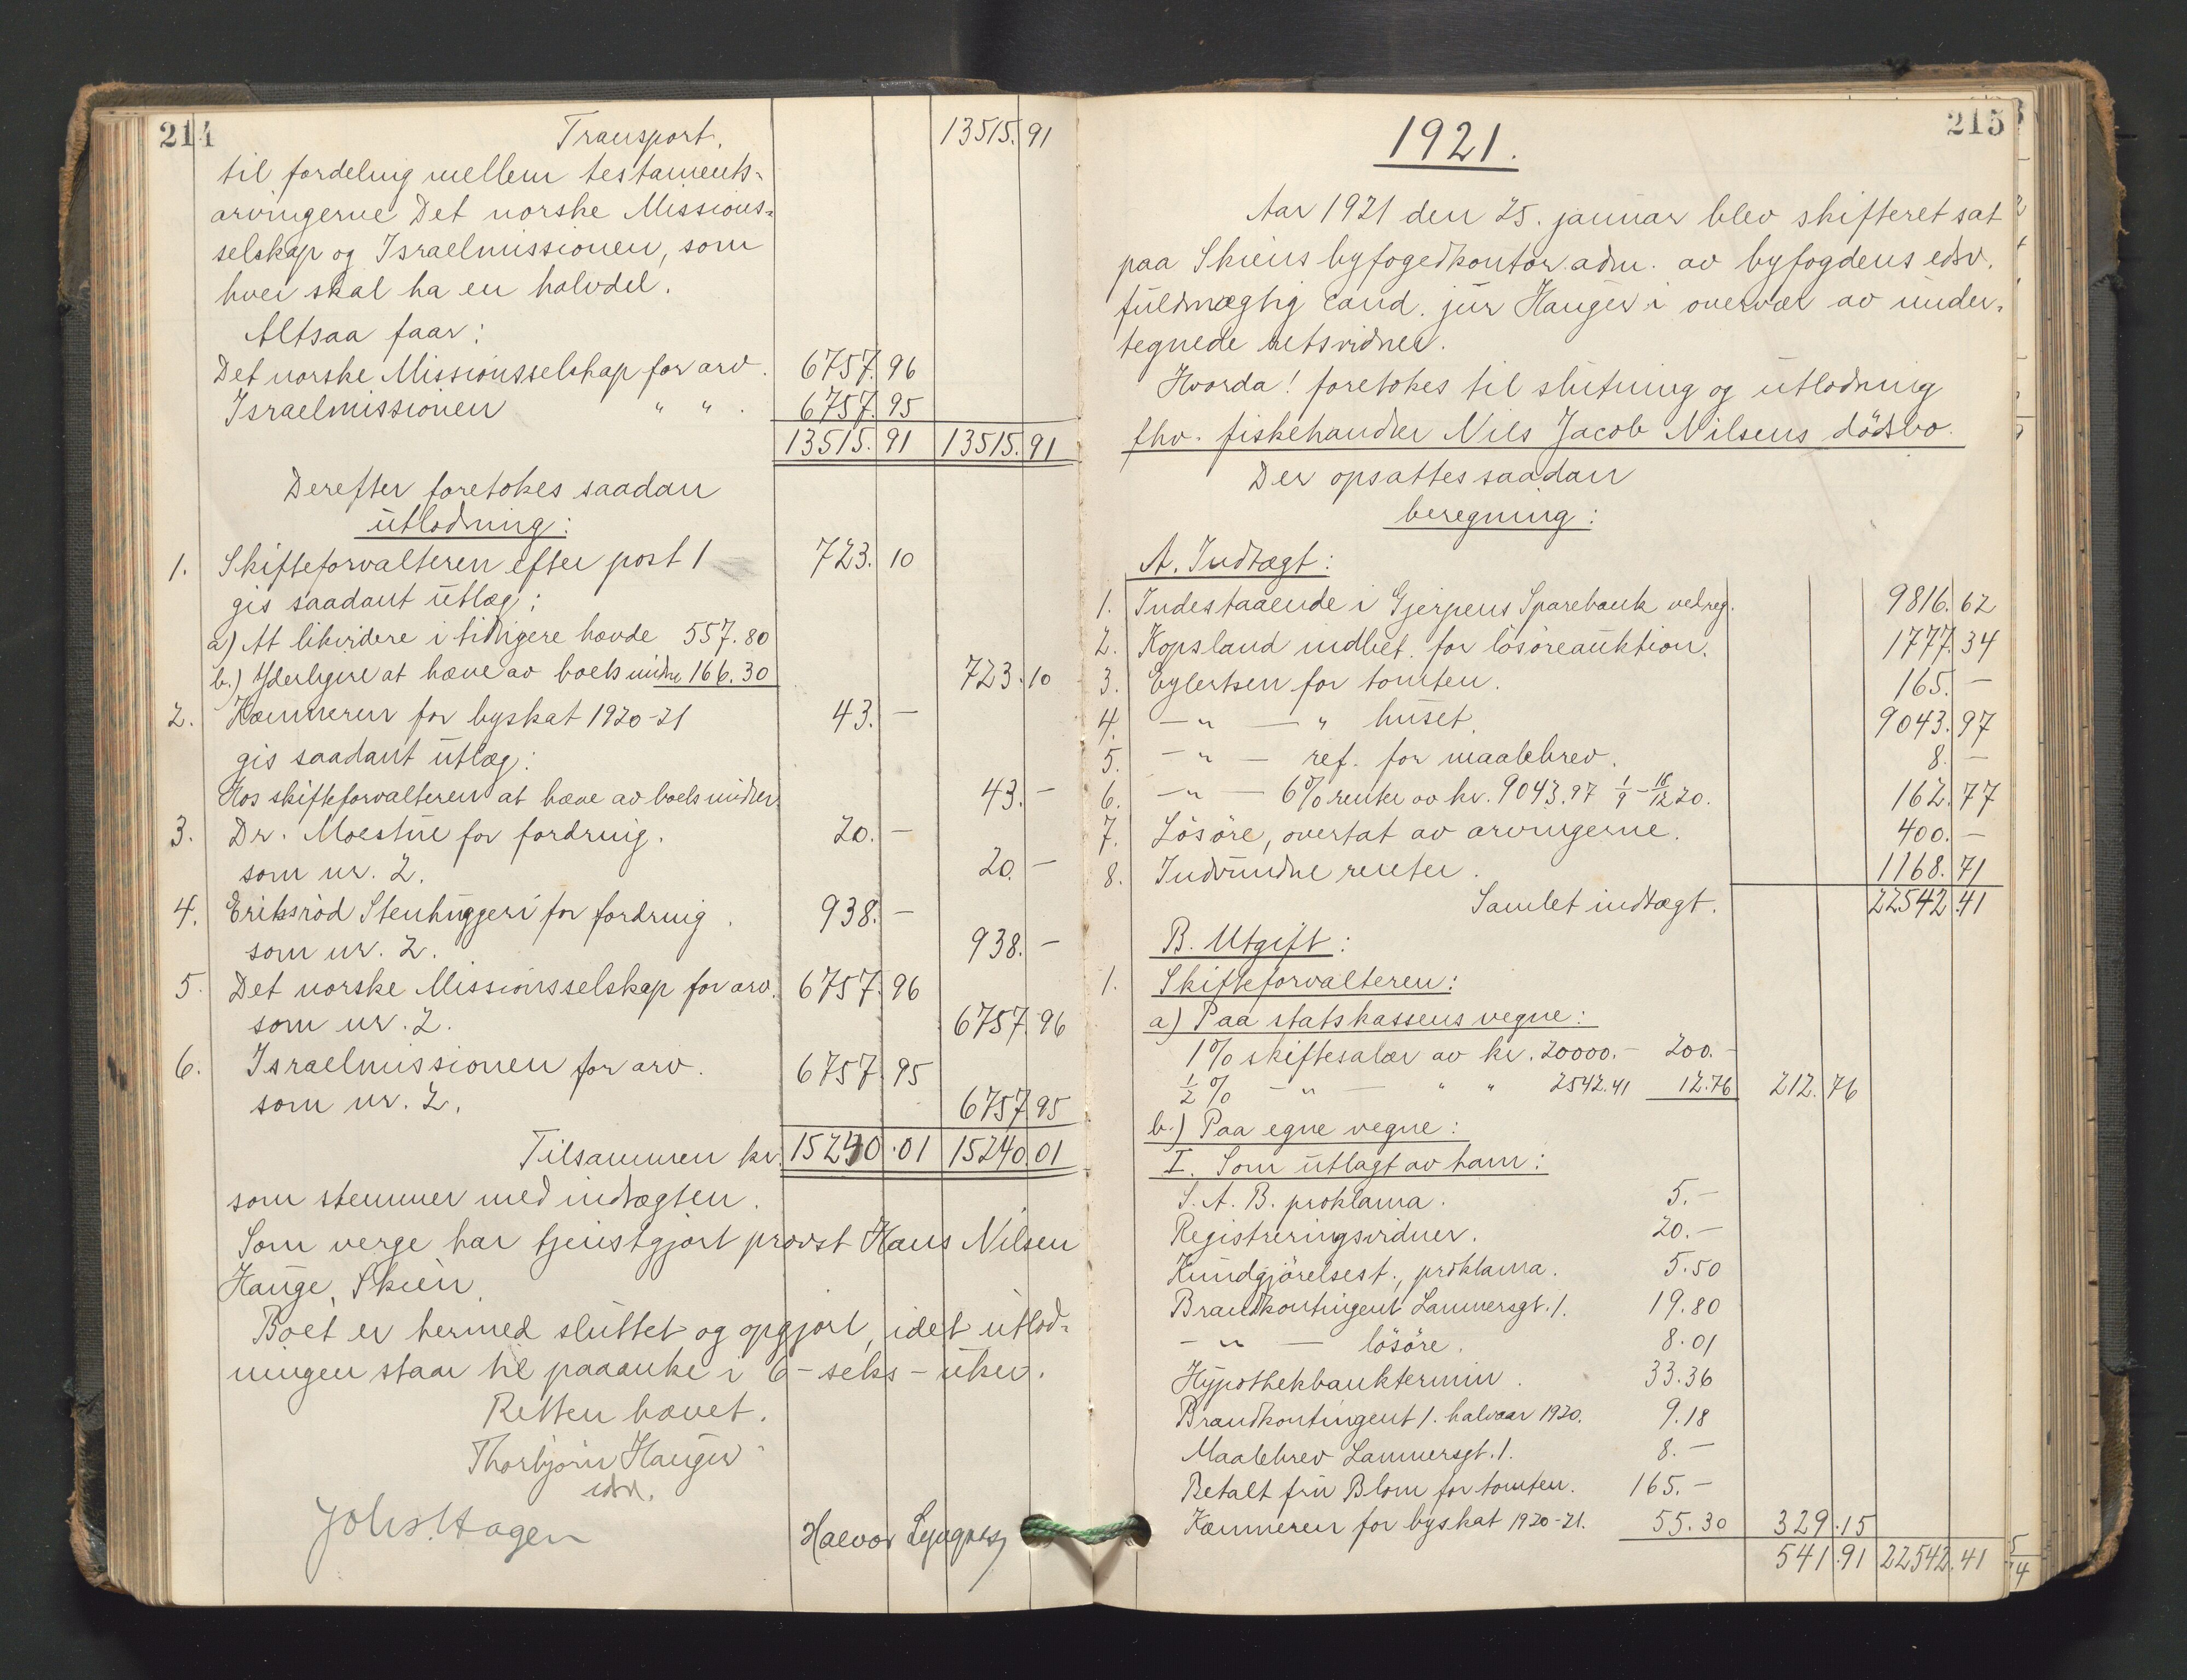 214
Transport. 13515. 91
til fordeling mellem testaments-
arvingerne Det norske Missions-
selskap og Israelmissionen, som
hver skal ha en halvdel.
Altsaa faar:
Det norske Missionsselskap for arv. 6757. 96
Israelmissionen " " . 6757. 95
13515. 91 13515. 91
Derefter foretokes saadan
utlodning:
1. Skifteforvalteren efter post 1 723. 10
gis saadant utlæg:
a) At likvidere i tidligere hævde 557.80
b.) Yderligere at hæve av boets midler 166.30 723. 10
2. Kæmneren for byskat 1920-21 43. —
gis saadant utlæg:
Hos skifteforvalteren at hæve av boets midler 43. —
3. Dr. Moestue for fordring. 20. —
som nr. 2. 20. —
4. Eriksrød Stenhuggeri for fordring. 938. —
som nr. 2. 938. —
5. Det norske Missionsselskap for arv. 6757. 96
som nr. 2. 6757. 96
6. Israelmissionen for arv. 6757. 95
som nr. 2. 6757. 95
Tilsammen kr. 15240. 01 15240. 01
som stemmer med indtægten.
Som verge har tjenstgjort provst Hans Nilsen
Hauge, Skien.
Boet er hermed sluttet og opgjort, idet utlod-
ningen staar til paaanke i 6 - seks - uker.
Retten hævet.
Thorbjørn Hauger
edsv.
Johs. Hagen Halvor
215
1921.
Aar 1921 den 25. januar blev skifteret sat
paa Skiens byfogedkontor adm. av byfogdens edsv.
fuldmægtig cand. jur Hauger i overvær av under-
tegnede retsvidner.
Hvorda! foretokes til slutning og utlodning
fhv. fiskehandler Nils Jacob Nilsens dödsbo.
Der opsattes saadan
beregning:
A. Indtægt:
1. Indestaaende i Gjerpens Sparebank ved reg. 9816. 62
2. Kopsland indbet. for lösöreauktion. 1777. 34
3. Eylertsen for tomten. 165. —
4. — " — " huset. 9043. 97
5. — " — ref. for maalebrev. 8. —
6. — " — 6% rente av kr. 9043.97 1/9 - 18/12 20. 162. 77
7. Lösöre, overtat av arvingerne. 400. —
8. Indvundne renter. 1168. 71
Samlet indtægt. 22542. 41
B. Utgift:
1. Skifteforvalteren:
a) Paa statskassens vegne:
1% skiftesalær av kr. 20000.— 200.—
1/2 % — " — " " 2542.41 12.76 212. 76
b.) Paa egne vegne:
I. Som utlagt av ham:
S. A. B. proklama. 5.—
Registreringsvidner. 20.—
Kundgjörelsest., proklama. 5.50
Brandkontingent Lammersgt. 1. 19.80
— " — lösöre. 8.01
Hypothekbanktermin. 33.36
Brandkontingent 1. halvaar 1920. 9.18
Maalebrev Lammersgt. 1. 8.—
Betalt fru Blom for tomten. 165.—
Kæmneren for byskat 1920-21. 55.30 329. 15
541. 91 22542. 41